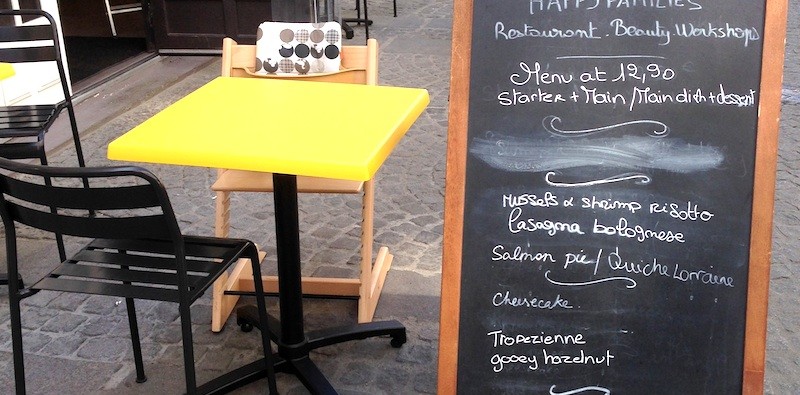 HAPPY FAMILIES
Restaurant. Beauty. Workshops
Menu at 12,90
Starter + Main / Main dish + dessert
Mussels & shrimp risotto
lasagna bolognese
Salmon pie / Quiche Lorraine
Cheesecake
Tropezienne
gooey hazelnut